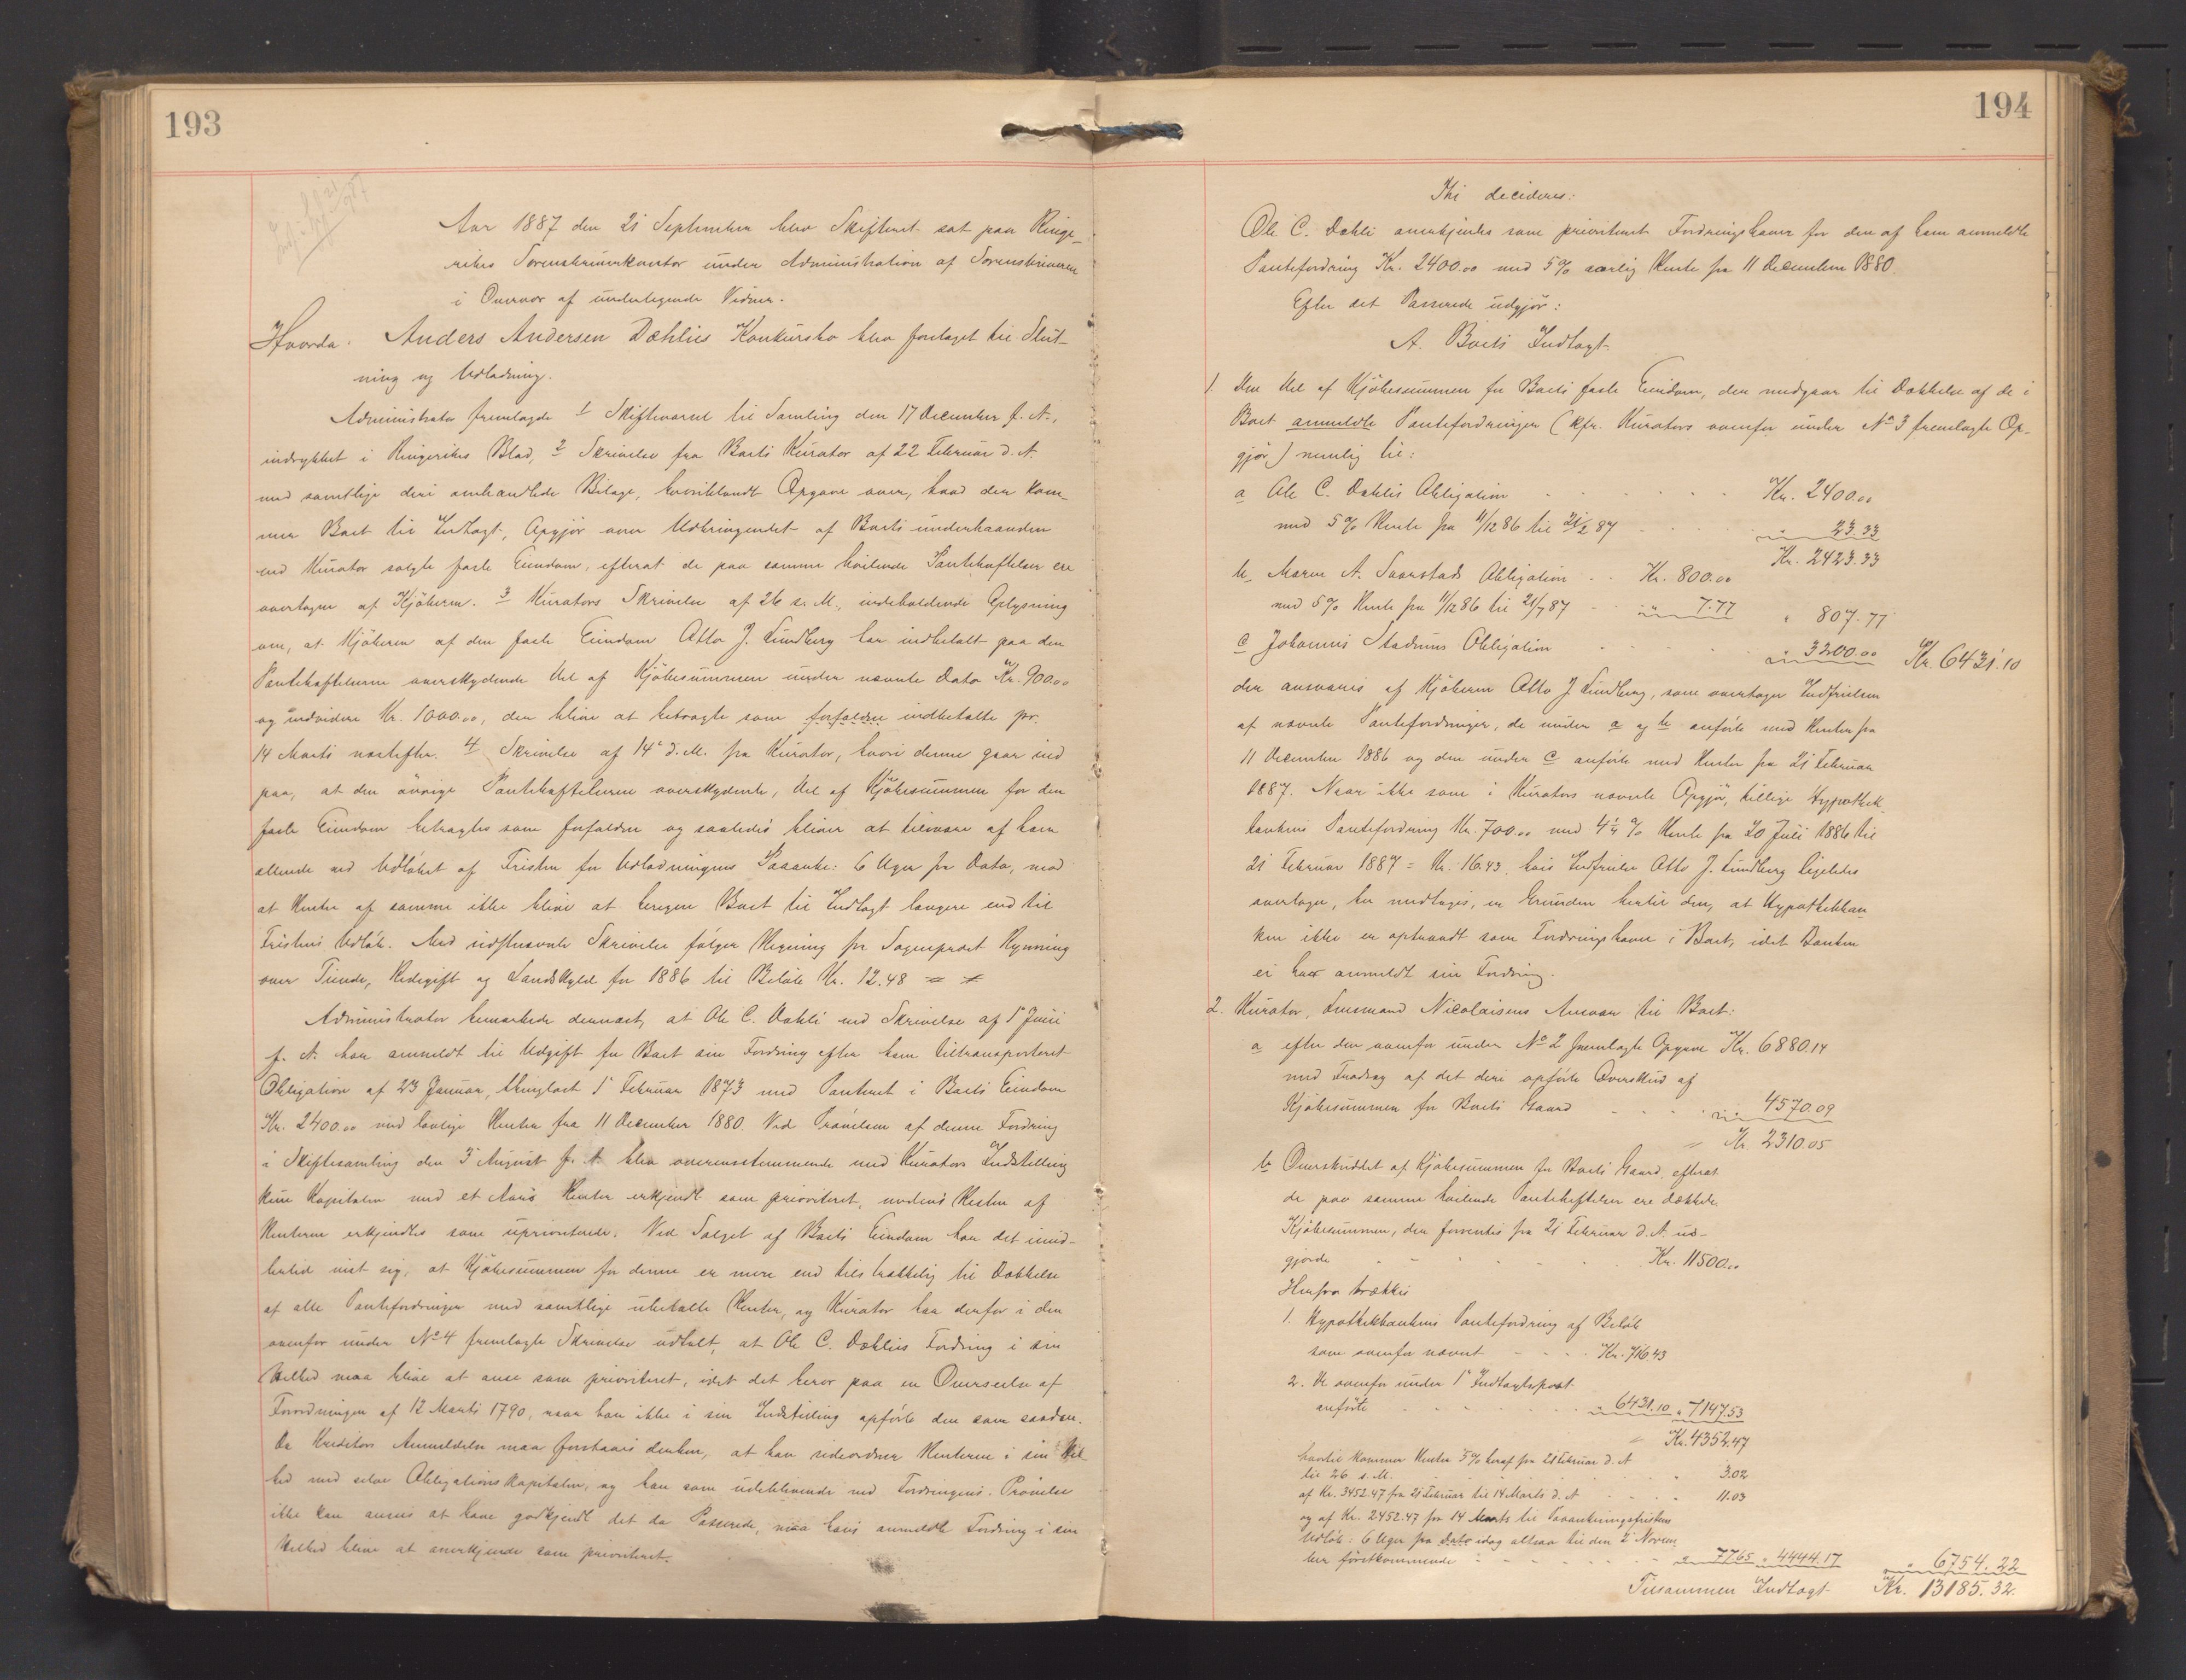 193
Aar 1887 den 21 September blev Skifteret sat paa Ringe-
rikes Sorenskriverkontor under Administration af Sorenskriveren
i Overvær af undertegnede Vidner.
Hvorda. Anders Andersen Dæhlies Konkursbo blev foretaget til Slut-
ning og Udlodning.
Administrator fremlagde 1 Skiftevarsel til Samling den 17 December f. A.,
indrykket i Ringerikes Blad, 2 Skrivelse fra Boets Kurator af 22 Februar d. A.
med samtlige deri omhandlede Bilage, hvoriblandt Opgave over, hvad der kom-
mer Boet til Indtægt, Opgjør over Udbringendet af Boets underhaanden
ved Kurator solgte faste Eiendom, efterat de paa samme hvilende Pantehæftelser ere
overtagne af Kjøberen. 3 Kurators Skrivelse af 26 s. M., indeholdende Oplysning
om, at Kjøberen af den faste Eiendom Otto J. Lundberg har indbetalt paa den
Pantehæftelserne overskydende Del af Kjøbesummen under nævnte Dato Kr. 900.00
og endvidere Kr. 1000.00, der blive at betragte som forfaldne indbetalte pr.
14 Marts næstefter. 4 Skrivelse af 14 d. M. fra Kurator, hvori denne gaar ind
paa, at den øvrige Pantehæftelserne overskydende, Del af Kjøbesummen for den
faste Eiendom betragtes som forfalden og saaledes bliver at tilsvare af ham
allerede ved Udløbet af Fristen for Udlodningens Paaanke: 6 Uger fra Dato, mod
at Renter af samme ikke blive at beregne Boet til Indtægt længere end til
Fristens Udløb. Med sidstnævnte Skrivelse følger Regning fra Sogneprest Rynning
over Tiende, Redegift og Landskyld for 1886 til Beløb Kr. 12.48
Administrator bemærkede dernæst, at Ole C. Dæhli ved Skrivelse af 1 Juni
f. A. har anmeldt til Udgift for Boet sin Fordring efter ham tiltransporteret
Obligation af 23 Januar, thinglæst 1 Februar 1873 med Panteret i Boets Eiendom
Kr. 2400.00 med lovlige Renter fra 11 December 1880. Ved Prøvelsen af denne Fordring
i Skiftesamling den 3 August f. A. blev overensstemmende med Kurators Indstilling
kun Kapitalen med et Aars Renter erkjendt som prioriteret, medens Resten af
Renterne erkjendtes som uprioriterede. Ved Salget af Boets Eiendom har det imid-
lertid vist sig, at Kjøbesummen for denne er mere end tilstrækkelig til Dækkelse
af alle Pantefordringer med samtlige ubetalte Renter, og Kurator har derfor i den
ovenfor under No 4 fremlagte Skrivelse udtalt, at Ole C. Dæhlies Fordring i sin
Helhed maa blive at anse som prioriteret, idet det beror paa en Overseelse af
Forordningen af 12 Marts 1790, naar han ikke i sin Indstilling opførte den som saadan.
Da Kreditors Anmeldelse maa forstaaes derhen, at han sideordner Renterne i sin Hel-
hed med selve Obligationskapitalen, og han som udeblivende ved Fordringens Prøvelse
ikke kan ansees at have godkjendt det da Passerede, maa hans anmeldte Fordring i sin
Helhed blive at anerkjende som prioriteret.
194
Thi decideres:
Ole C. Dæhli anerkjendes som prioriteret Fordringshaver for den af ham anmeldte
Pantefordring Kr. 2400.00 med 5% aarlig Rente fra 11 December 1880.
Efter det Passerede udgjør:
A. Boets Indtægt.
1. Den Del af Kjøbesummen for Boets faste Eiendom, der medgaar til Dækkelse af de i
Boet anmeldte Pantefordringer (kfr. Kurators ovenfor under No 3 fremlagte Op-
gjør) nemlig til:
a Ole C. Dæhlis Obligation Kr. 2400.00
med 5% Rente fra 11/12 86 til 21/2 87 " 23.33
Kr. 2423.33
b. Maren A. Saarstads Obligation Kr. 800.00
med 5% Rente fra 11/12 86 til 21/2 87 " 7.77 " 807.77
c Johannes Stadums Obligation " 3200.00 Kr. 6431.10
der ansvares af Kjøberen Otto J. Lundberg, som overtager Indfrielsen
af nævnte Pantefordringer, de under a og b anførte med Renter fra
11 December 1886 og den under c anførte med Renter fra 21 Februar
1887. Naar ikke som i Kurators nævnte Opgjør, tillige Hypothek-
bankens Pantefordring Kr. 700.00 med 4 1/4 % Rente fra 20 Juli 1886 til
21 Februar 1887 = Kr. 16.43, hvis Indfrielse Otto J. Lundberg ligeledes
overtager, her medtages, er Grunden hertil den, at Hypothekban-
ken ikke er optraadt som Fordringshaver i Boet, idet Banken
ei har anmeldt sin Fordring.
2. Kurator, Lensmand Nicolaisens Ansvar til Boet:
a efter den ovenfor under No 2 fremlagte Opgave Kr. 6880.14
med Fradrag af det deri opførte Overskud af
Kjøbesummen for Boets Gaard " 4570.09
= Kr. 2310.05
b Overskuddet af Kjøbesummen for Boets Gaard, efterat
de paa samme hvilende Pantehæftelser ere dækkede.
Kjøbesummen, der forrentes fra 21 Februar d. A. ud-
gjorde Kr. 11500.00
Herfra trækkes
1. Hypothekbankens Pantefordring af Beløb
som ovenfor nævnt Kr. 716.43
2. De ovenfor under 1 Indtægtspost
anførte " 6431.10 " 7147.53
= Kr. 4352.47
hvortil kommer Renter 5% heraf fra 21 Februar d. A
til 26 s. M. " 3.02
af Kr. 3452.47 fra 21 Februar til 14 Marts d. A " 11.03
og af Kr. 2452.47 fra 14 Marts til Paaankningsfristens
Udløb: 6 Uger fra Dato idag altsaa til den 2 Novem-
ber førstkommende " 77.65 " 4444.17 " 6754.22
Tilsammen Indtægt Kr. 13185.32.